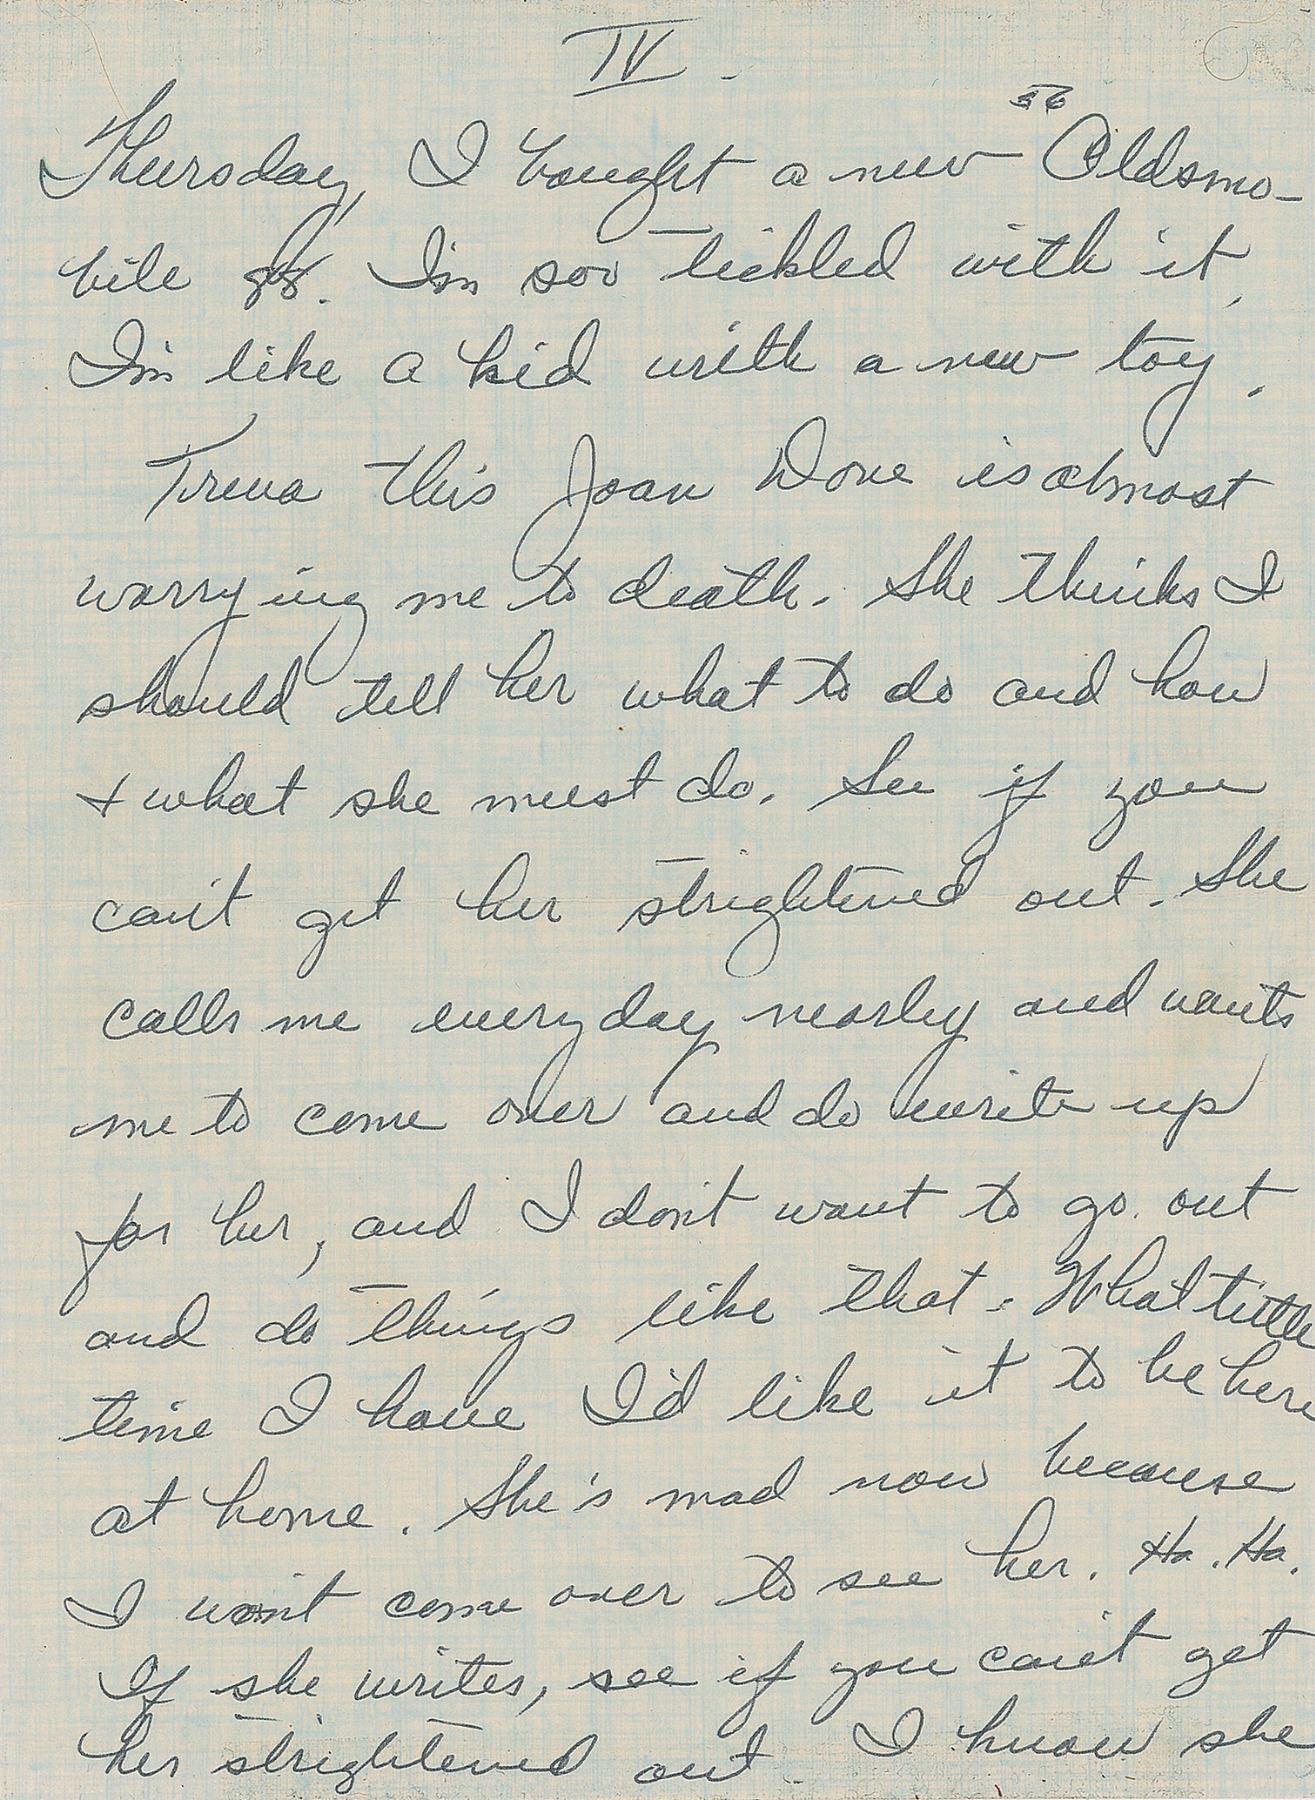 IV -
56
Thursday, I bought a new Oldsmo-
bile 98. I'm soo tickled with it,
I'm like a kid with a new toy.
Treva this Joan Dove is almost
worrying me to death. She thinks I
should tell her what to do and how
+ what she must do. See if you
can't get her strightened out. She
calls me everyday nearly and wants
me to come over and do write up
for her, and I don't want to go out
and do things like that. What little
time I have I'd like it to be here
at home. She's mad now because
I won't come over to see her. Ha. Ha.
If she writes, see if you can't get
her strightened out. I know she